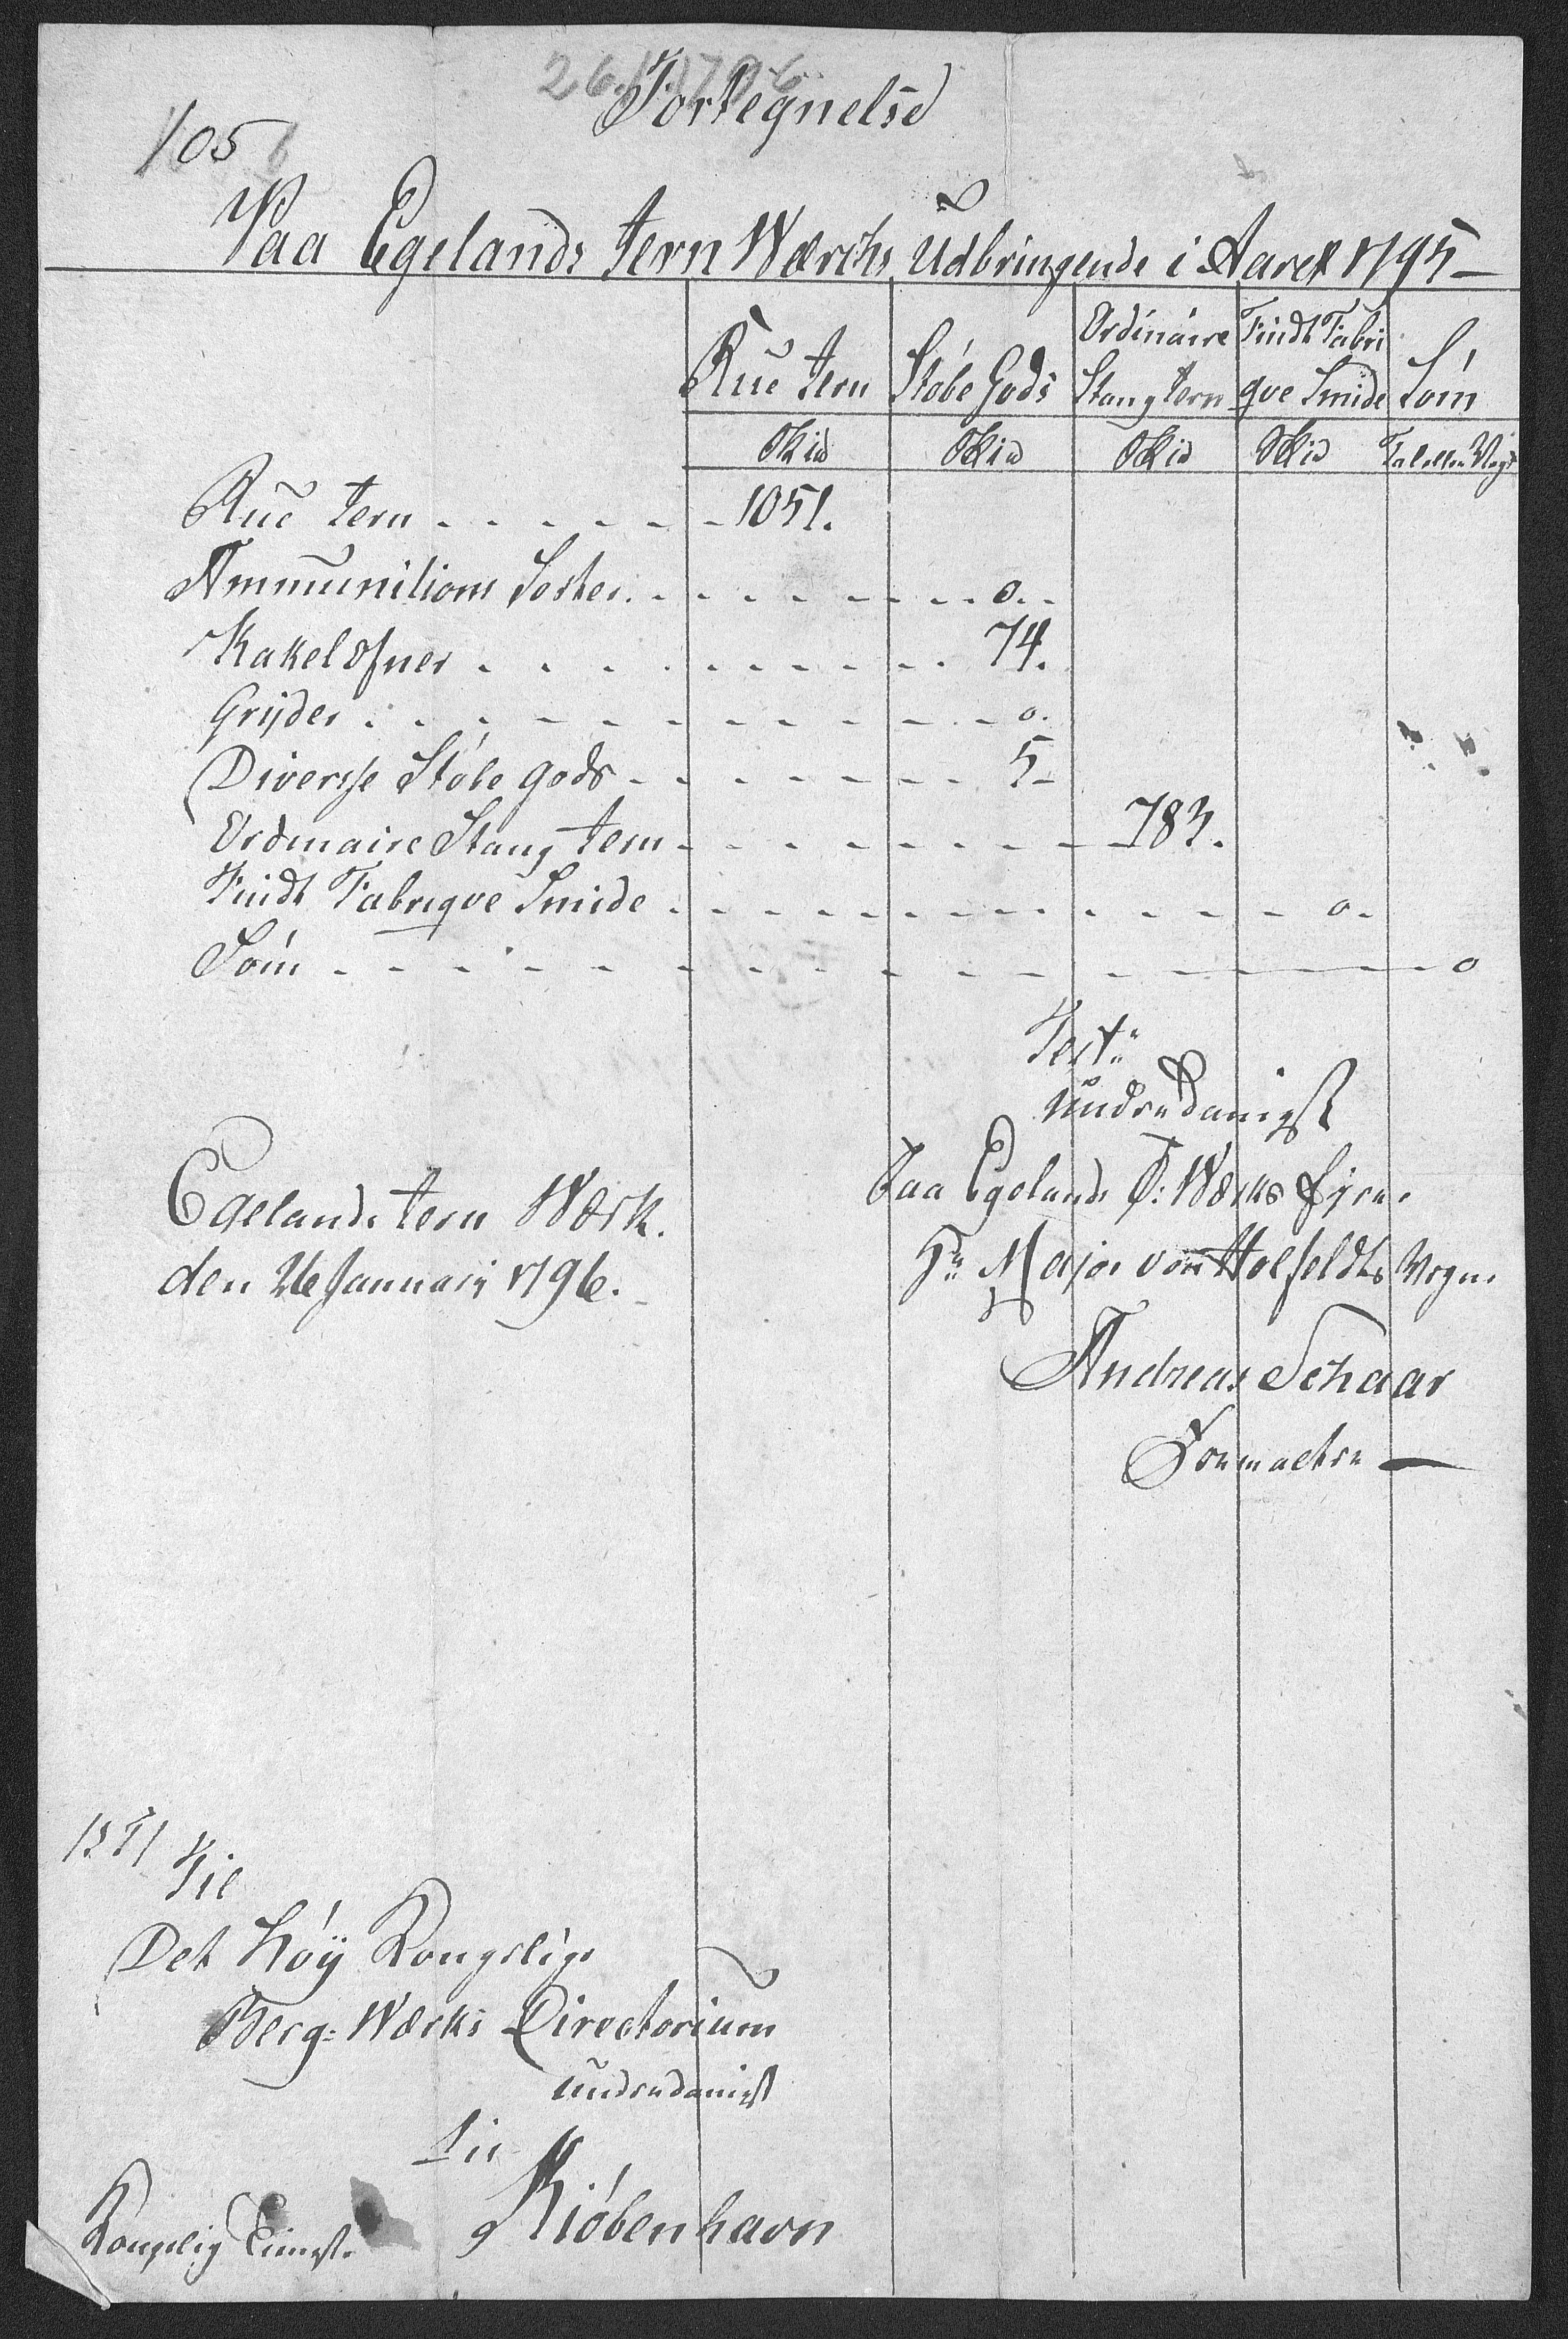 26/1 1796
Fortegnelse
105
Paa Egelands Jern Wærcks Udbringende i Aaret 1795 —
Rue Jern | Støbe Gods | Ordinaire Stang Jern | Fiidt Fabriqve Smide | Søm
Skid | Skid | Skid | Skid | Tal eller Vegt
Rue Jern - - - - - - 1051.
Ammunitions Sorter. - - - - - - - 0.
Kakelofner - - - - - - - 74.
Gryder - - - - - - - - 0.
Diversse Støbe gods - - - - - - 5 -
Ordinaire Stang Jern - - - - - - - 783.
Fiidt Fabriqve Smide - - - - - - - - 0.
Søm - - - - - - - - - - 0
Test:
Underdanigst
Paa Egelands J: Wærks Ejere
Hr Major von Holfeldts Wegne
Andreas Schaar
Formacter —
Egelands Jern Wærk.
den 26 Januarij 1796.
Til
Det Høy Kongelige
Berg: Wærks Directorium
underdanigst
Kiøbenhavn
Kongelig Tienest.